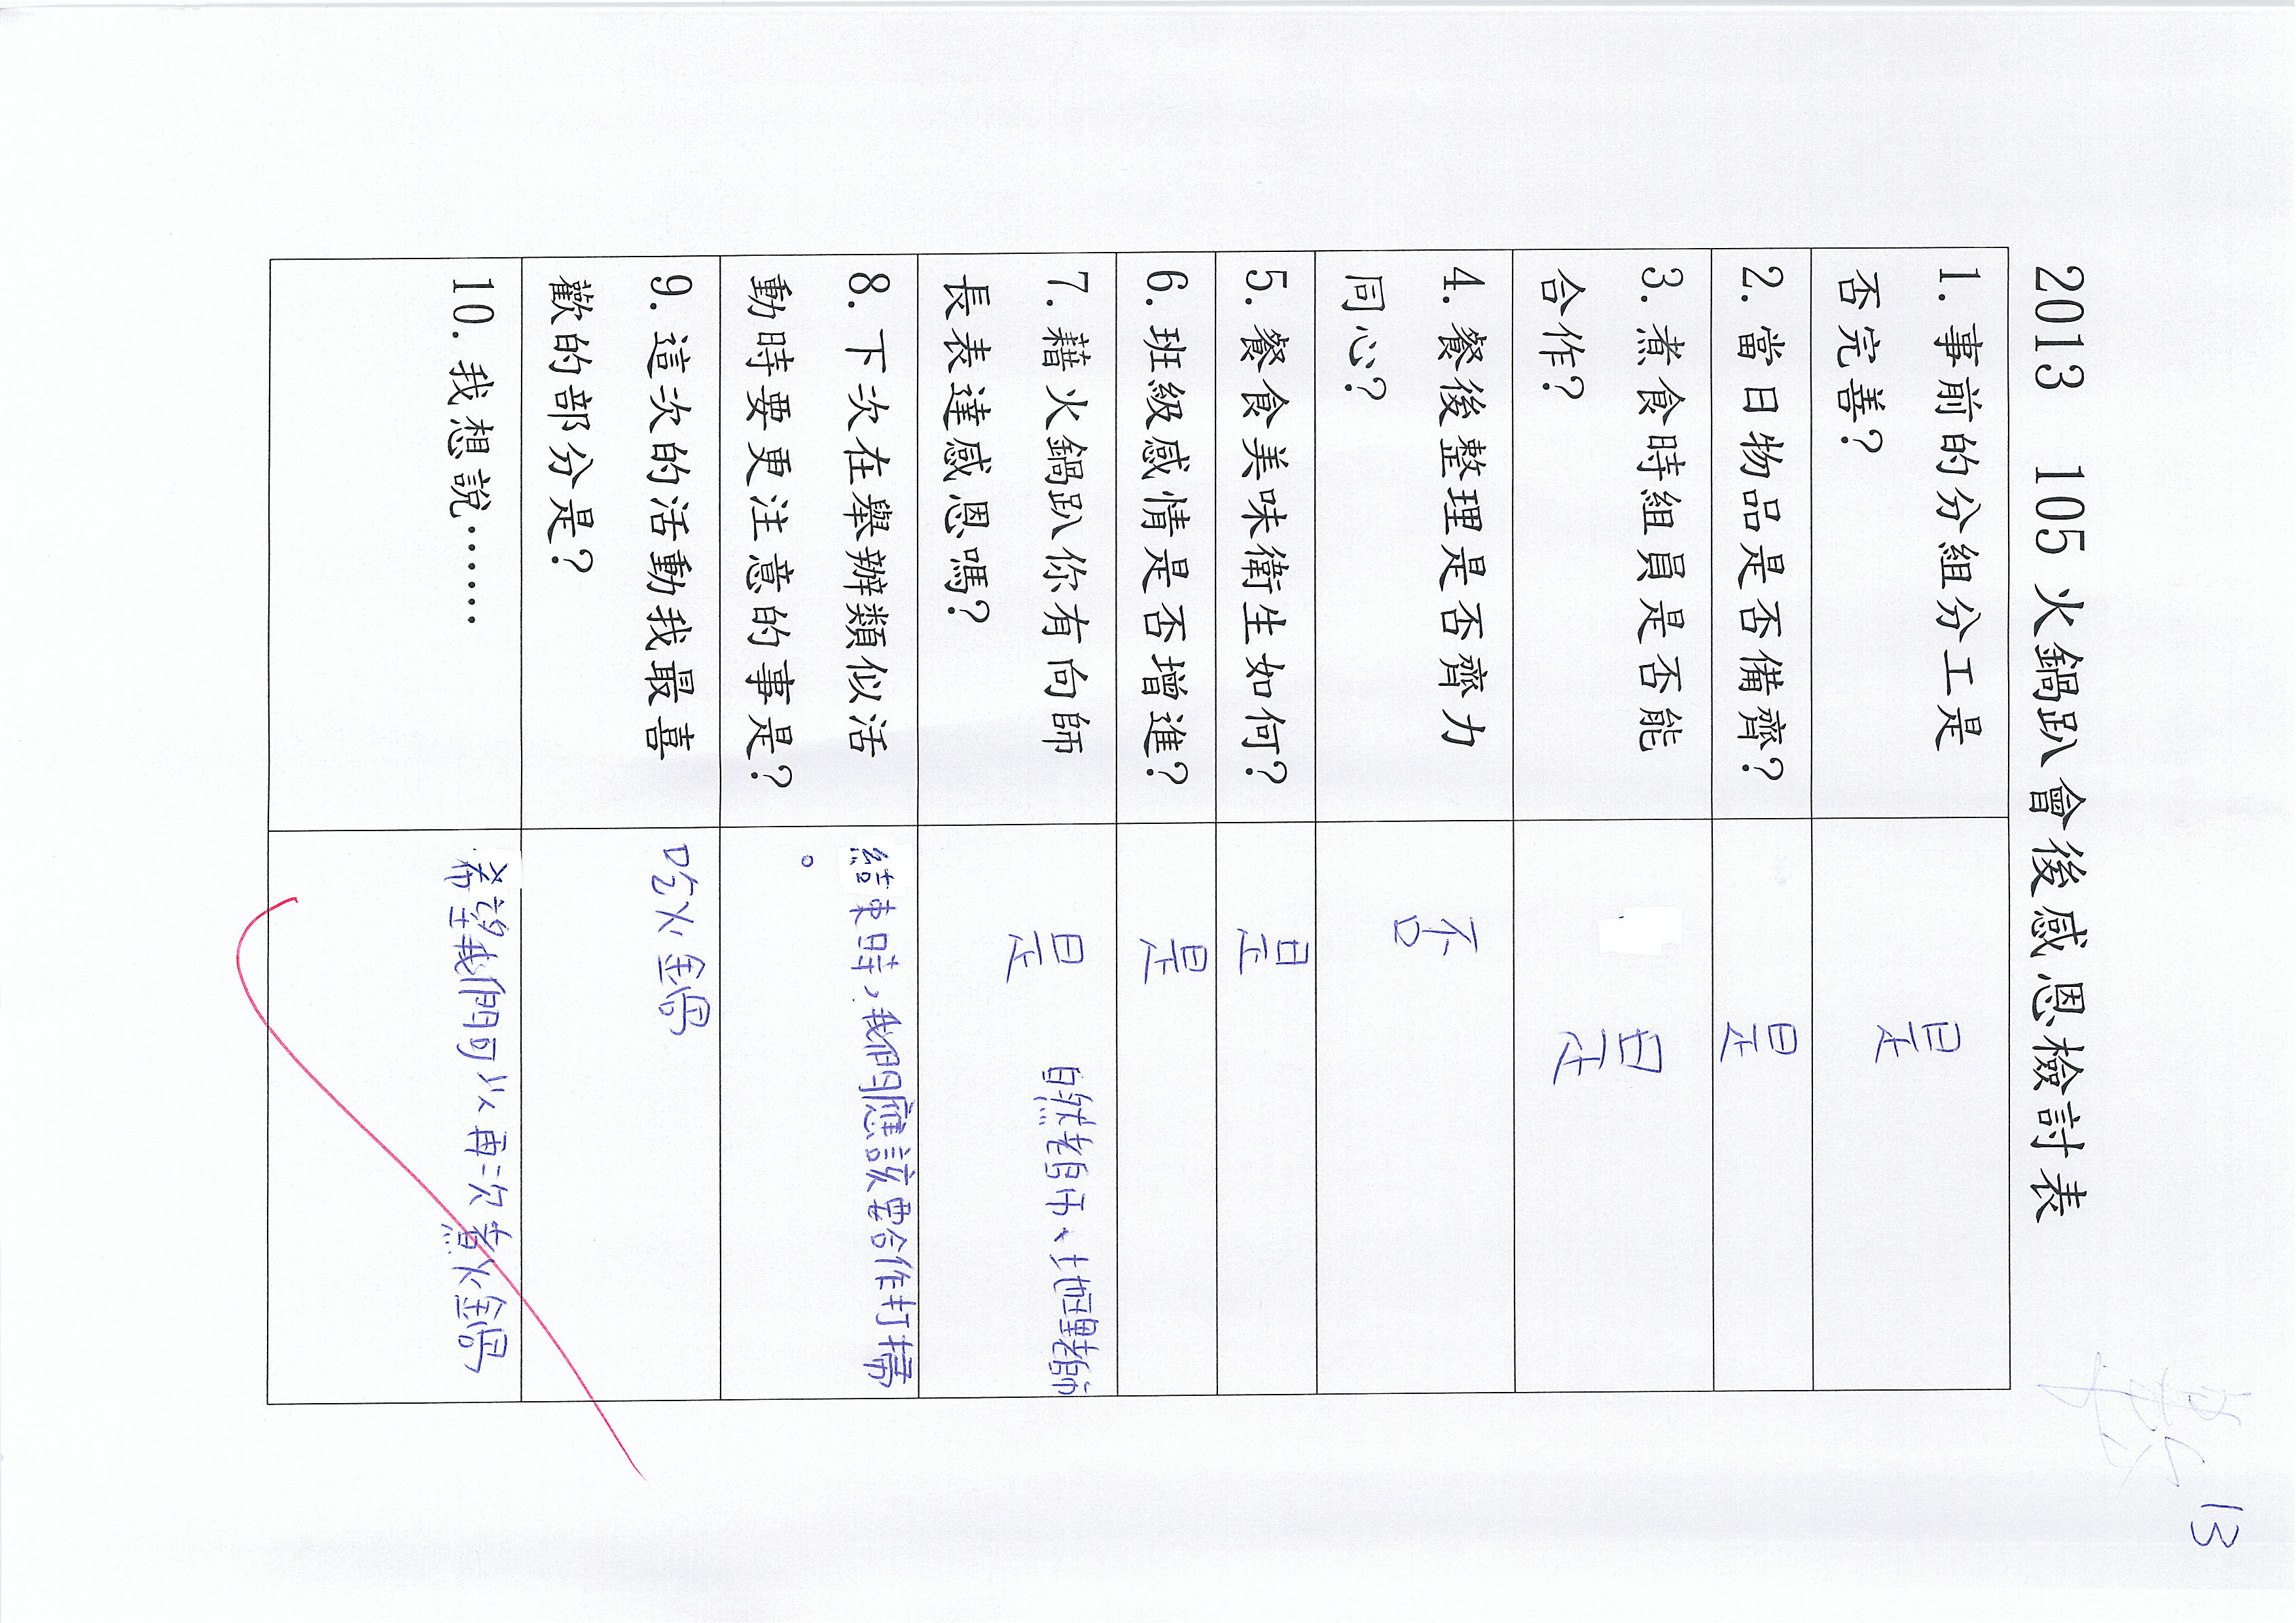 13
2013　105 火鍋趴會後感恩檢討表
1. 事前的分組分工是
否完善?
是
2. 當日物品是否備齊?
是
3. 煮食時組員是否能
合作?
是
4. 餐後整理是否齊力
同心?
否
5. 餐食美味衛生如何?
是
6. 班級感情是否增進?
是
7. 藉火鍋趴你有向師
長表達感恩嗎?
是　自然老師、地理老師
8. 下次在舉辦類似活
動時要更注意的事是?
結束時，我們應該要合作打掃
。
9. 這次的活動我最喜
歡的部分是?
吃火鍋
10. 我想說.......
希望我們可以再次煮火鍋